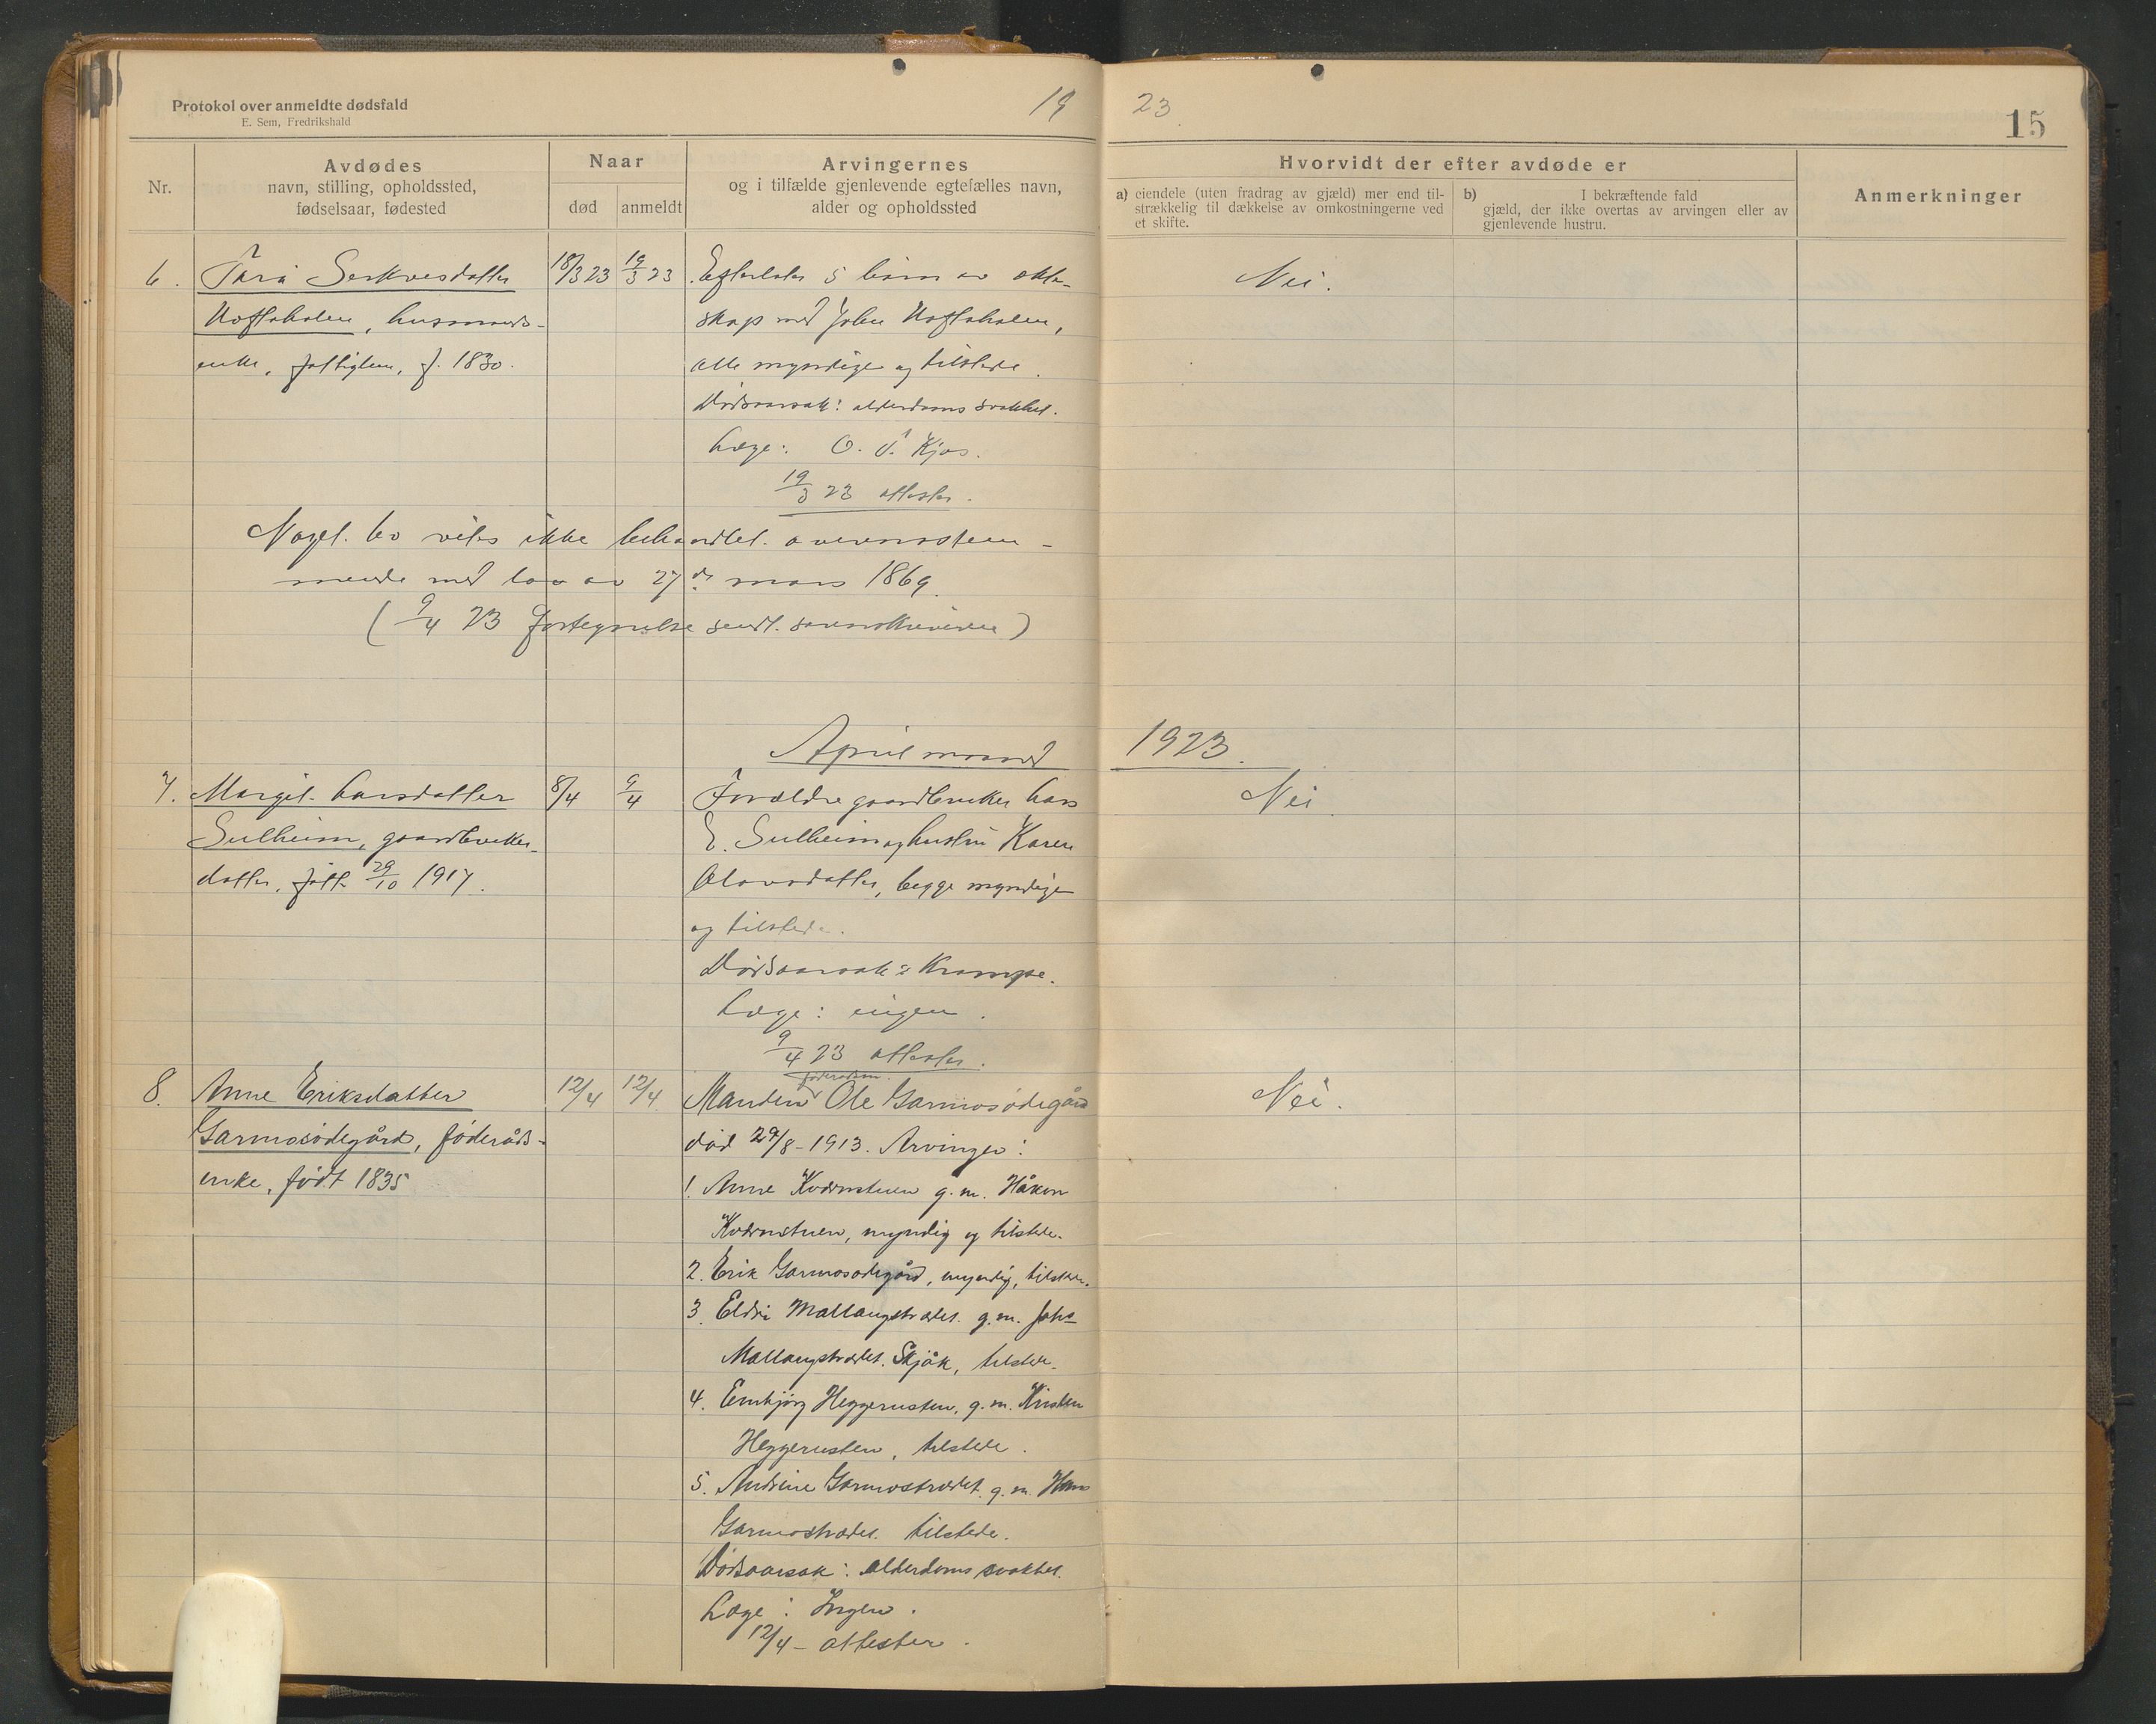 Protokol over anmeldte dødsfald
E. Sem, Fredrikshald
19
23.
15
Nr.
Avdødes
navn, stilling, opholdssted,
fødselsaar, fødested
Naar
død
anmeldt
Arvingernes
og i tilfælde gjenlevende egtefælles navn,
alder og opholdssted
Hvorvidt der efter avdøde er
a) eiendele (uten fradrag av gjæld) mer end til-
strækkelig til dækkelse av omkostningerne ved
et skifte.
b) I bekræftende fald
gjæld, der ikke overtas av arvingen eller av
gjenlevende hustru.
Anmerkninger
6. 18/3 23 19/3 23 Efterlater 5 barn av ekte-
Nei.
skap med John
enke, f. 1830.
alle myndige og tilstede.
Dødsaarsak: alderdoms svakhet.
Læge: O. Kjos.
19/3 23 attester.
bo vites ikke behandlet overensstem-
mende med lov av 27de mars 1869.
(9/4 23 fortegnelse sendt sorenskriveren)
April maaned
1923.
7. Margit Larsdatter 8/4 9/4 Forældre gaardbruker Lars
Nei
Sulheim, gaardbruker-
E. Sulheim og hustru Karen
datter, født 29/10 1917.
Olavsdatter, begge myndige
og tilstede.
Dødsaarsak: Krampe.
Læge: ingen.
9/4 23 attester.
føderådsm.
8. Anne Eriksdatter 12/4 12/4 Manden Ole Garmosødegård
Nei.
Garmosødegård, føderåds-
død 29/8-1913. Arvinger:
enke, født 1835
1. Anne Kvernstuen g. m. Håkon
Kvernstuen, myndig og tilstede.
2. Erik Garmosødegård, myndig, tilstede.
3. Eldri Mallangstrædet g. m. Johs
Mallangstrædet Skjåk, tilstede.
4. Embjørg Heggerusten, g. m. Kristen
Heggerusten, tilstede.
5. Andrine Garmostrædet g. m. Hans
Garmostrædet tilstede.
Dødsaarsak: alderdoms svakhet.
Læge: Ingen.
12/4 - attester.